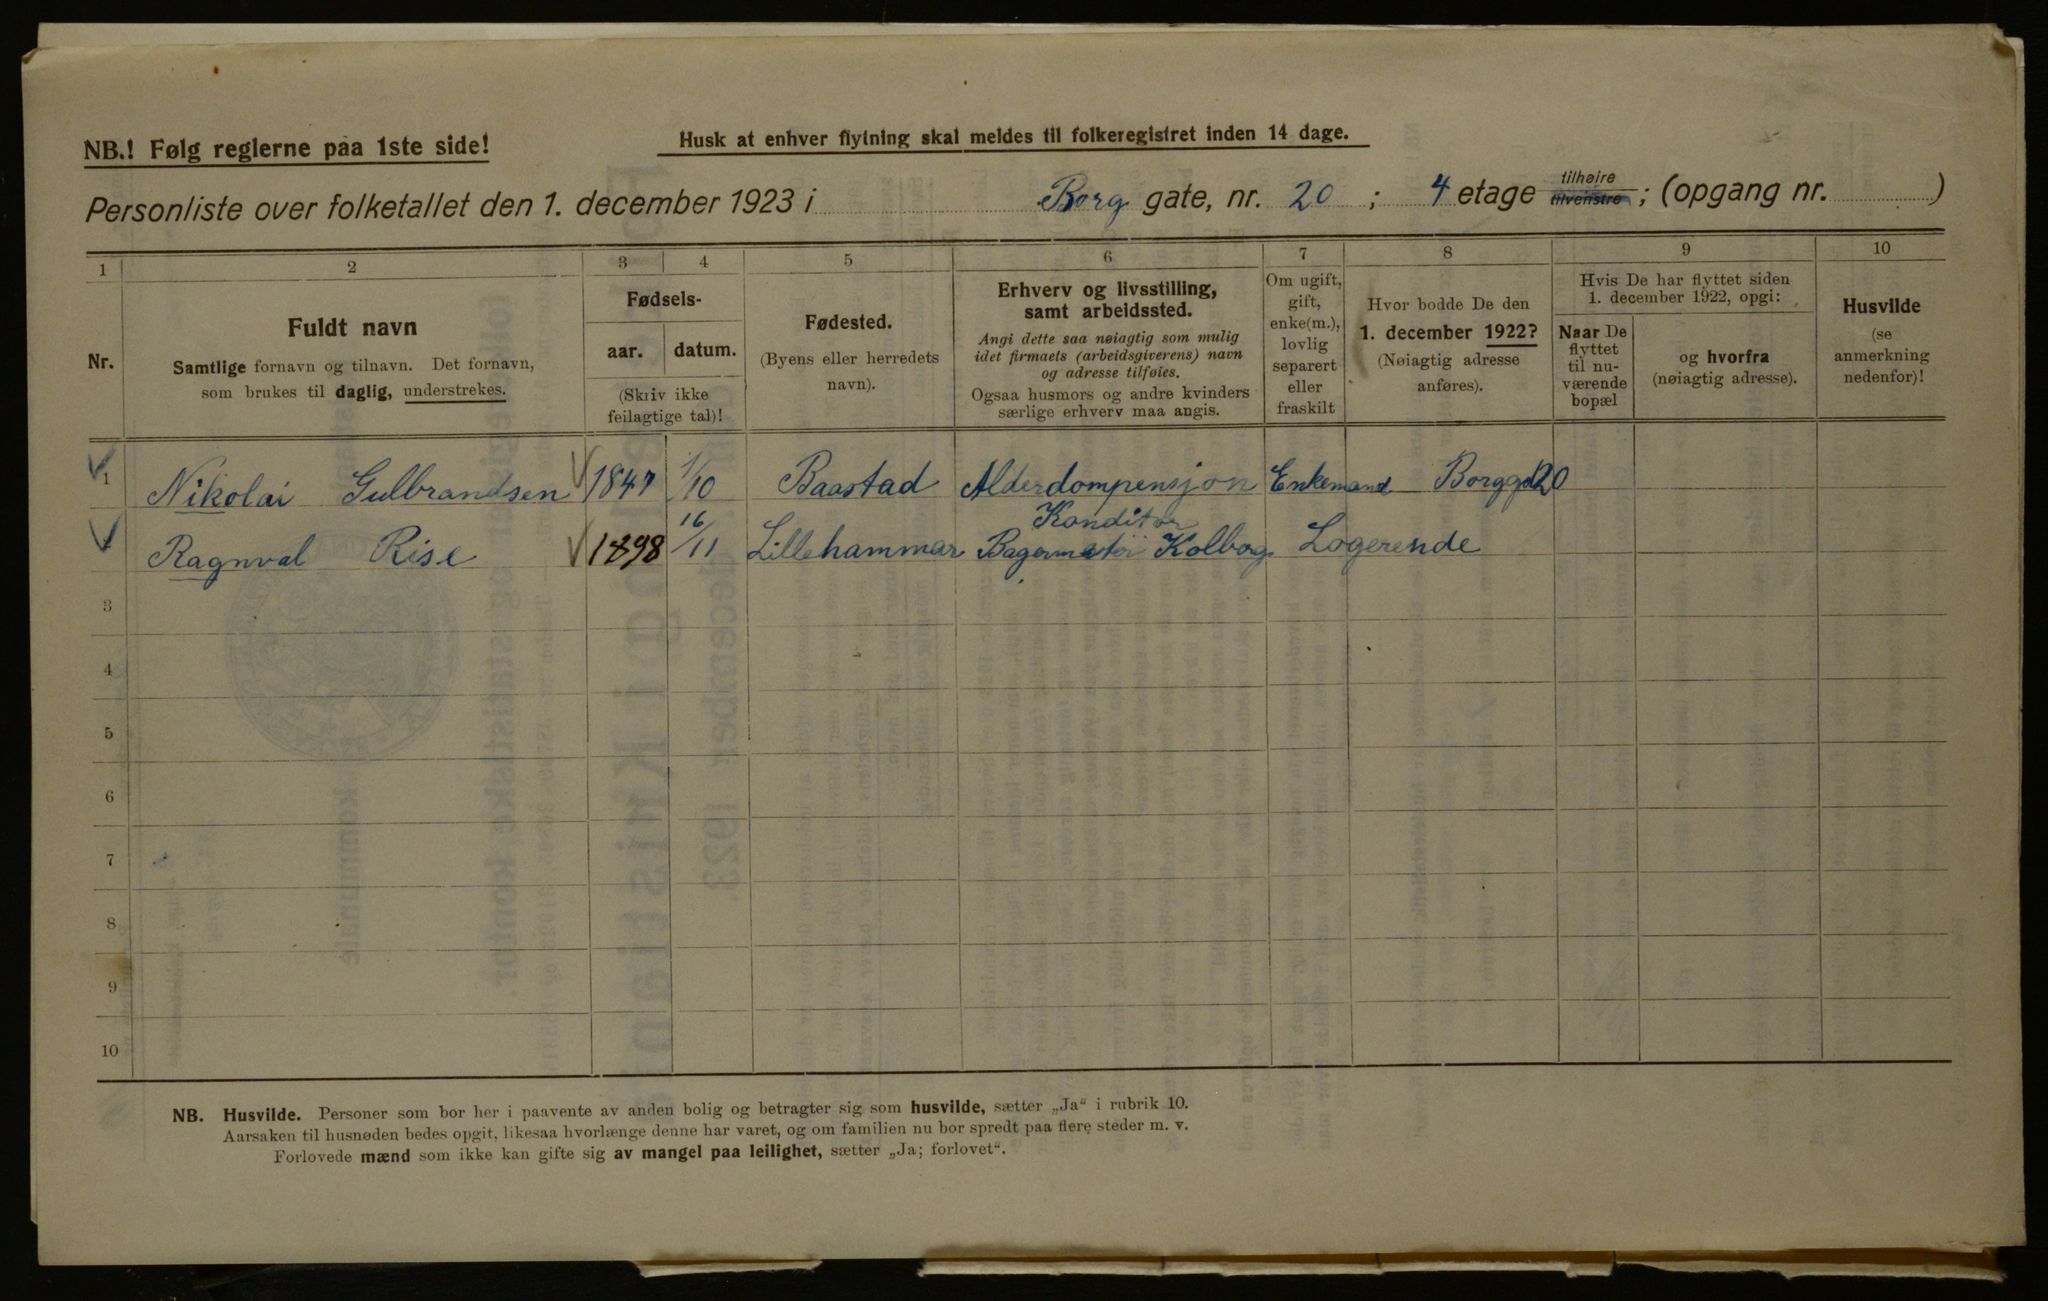 NB.! Følg reglerne paa 1ste side!
Husk at enhver flytning skal meldes til folkeregistret inden 14 dage.
Personliste over folketallet den 1. december 1923 i Borg gate, nr. 20 ; 4 etage tilhøire tilvenstre ; (opgang nr. )
1 2 3 4 5 6 7 8 9 10
Nr.
Fuldt navn
Samtlige fornavn og tilnavn. Det fornavn,
som brukes til daglig, understrekes.
Fødsels-
aar. datum.
(Skriv ikke
feilagtige tal)!
Fødested.
(Byens eller herredets
navn).
Erhverv og livsstilling,
samt arbeidssted.
Angi dette saa nøiagtig som mulig
idet firmaets (arbeidsgiverens) navn
og adresse tilføies.
Ogsaa husmors og andre kvinders
særlige erhverv maa angis.
Om ugift,
gift,
enke(m.),
lovlig
separert
eller
fraskilt
Hvor bodde De den
1. december 1922?
(Nøiagtig adresse
anføres).
Hvis De har flyttet siden
1. december 1922, opgi:
Naar De
flyttet
til nu-
værende
bopæl
og hvorfra
(nøiagtig adresse).
Husvilde
(se
anmerkning
nedenfor)!
1 Nikolai Gulbrandsen 1847 1/10 Baastad Alderdompensjon Enkemand Borggd 20
Konditor
Ragnval Rise 1898 16/11 Lillehammar Kolbog Logerende
3
4
5
6
7
8
9
10
NB. Husvilde. Personer som bor her i paavente av anden bolig og betragter sig som husvilde, sætter „Ja“ i rubrik 10.
Aarsaken til husnøden bedes opgit, likesaa hvorlænge denne har varet, og om familien nu bor spredt paa flere steder m. v.
Forlovede mænd som ikke kan gifte sig av mangel paa leilighet, sætter „Ja; forlovet“.